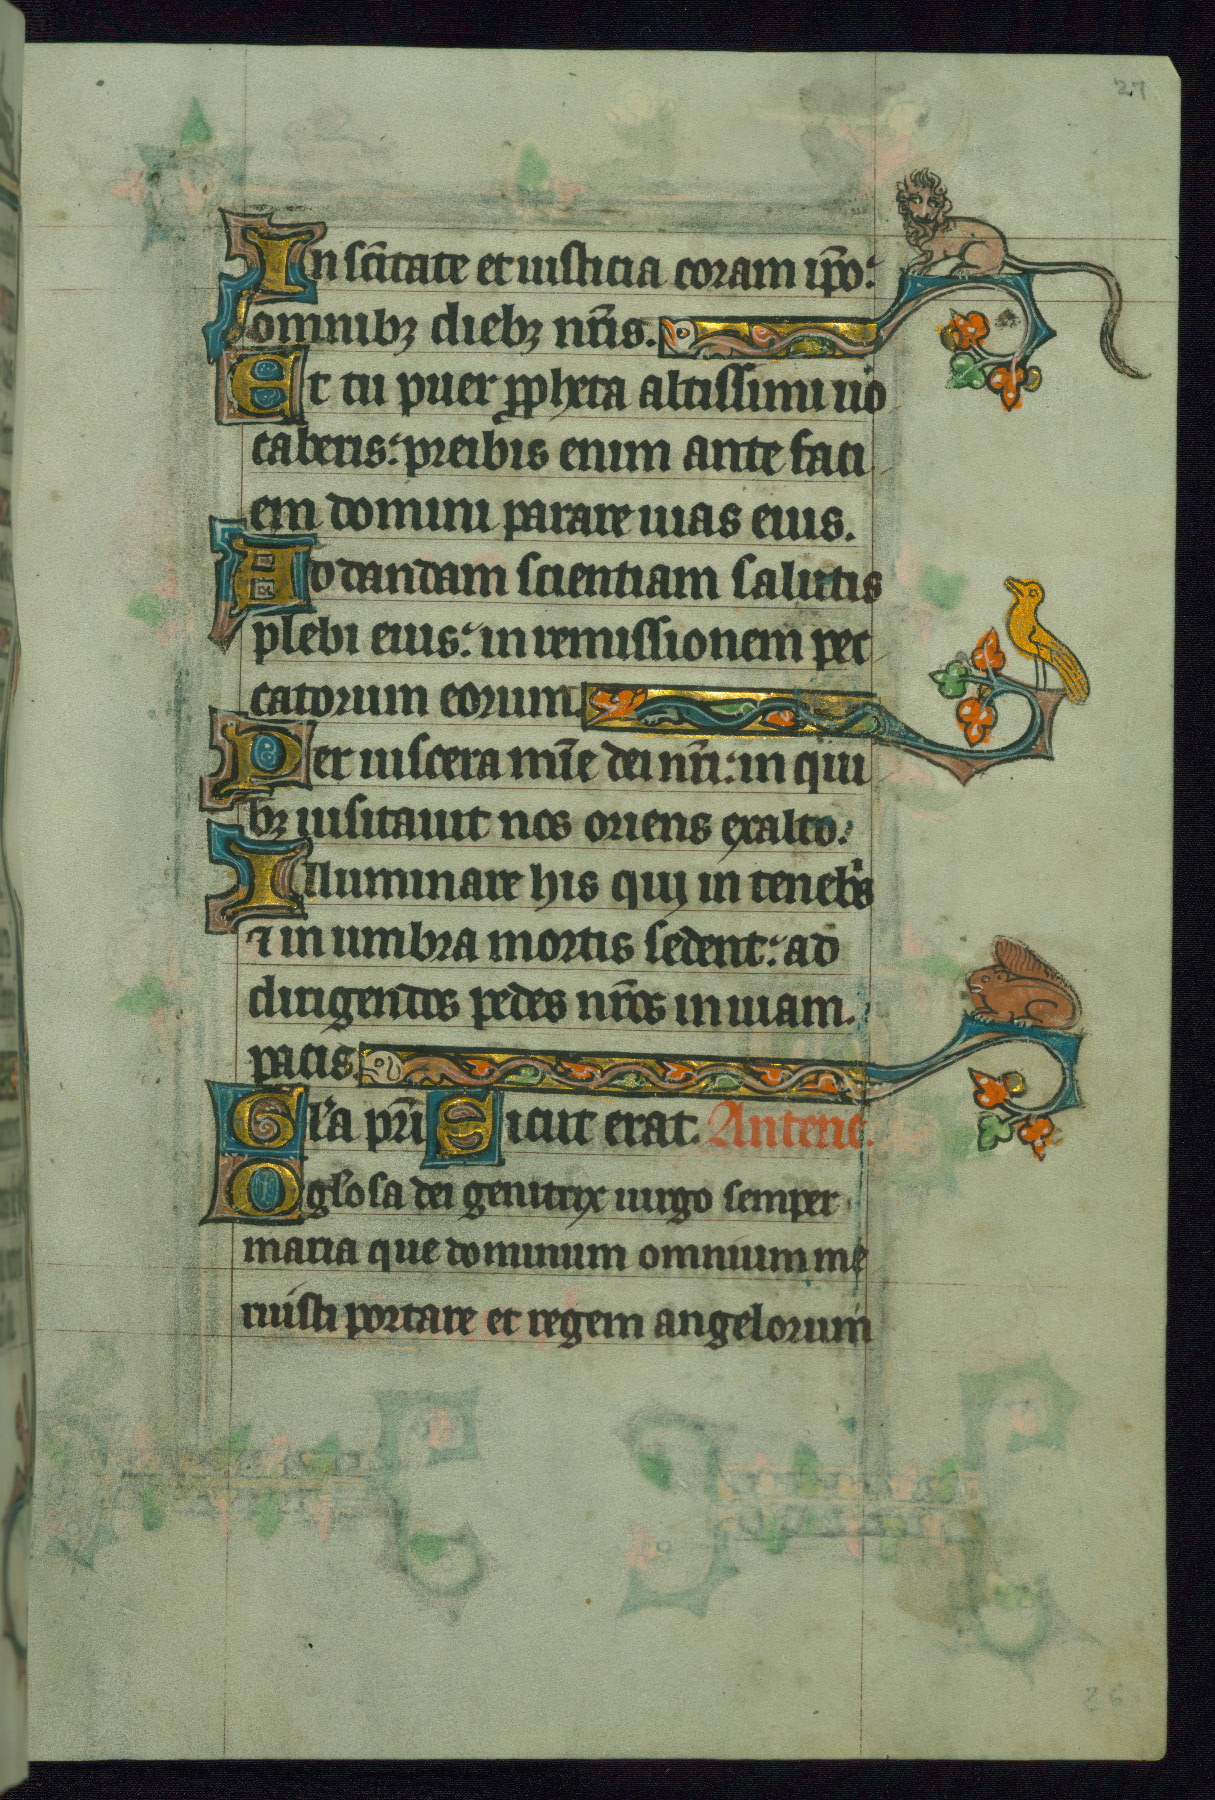 27
In sc̄itate et iusticia coram ip̄o:
omnibꝫ diebꝫ nr̄is.
Et tu puer ꝓpheta altissimi uo
caberis: preibis enim ante faci
em domini parare uias eius.
Ad dandam scientiam salutis
plebi eius: in remissionem pec
catorum eorum
Per uiscera mīe dei nr̄i: in qui
bꝫ uisitauit nos oriens exalto.
Illuminare his qui in tenebͥs
⁊ in umbra mortis sedent: ad
dirigendos pedes nr̄os in uiam.
pacis.
Gl̄a pr̄i Sicut erat. Antene.
O gl̄osa dei genitrix uirgo semper
maria que dominum omnium me
ruisti portare et regem angelorum
26